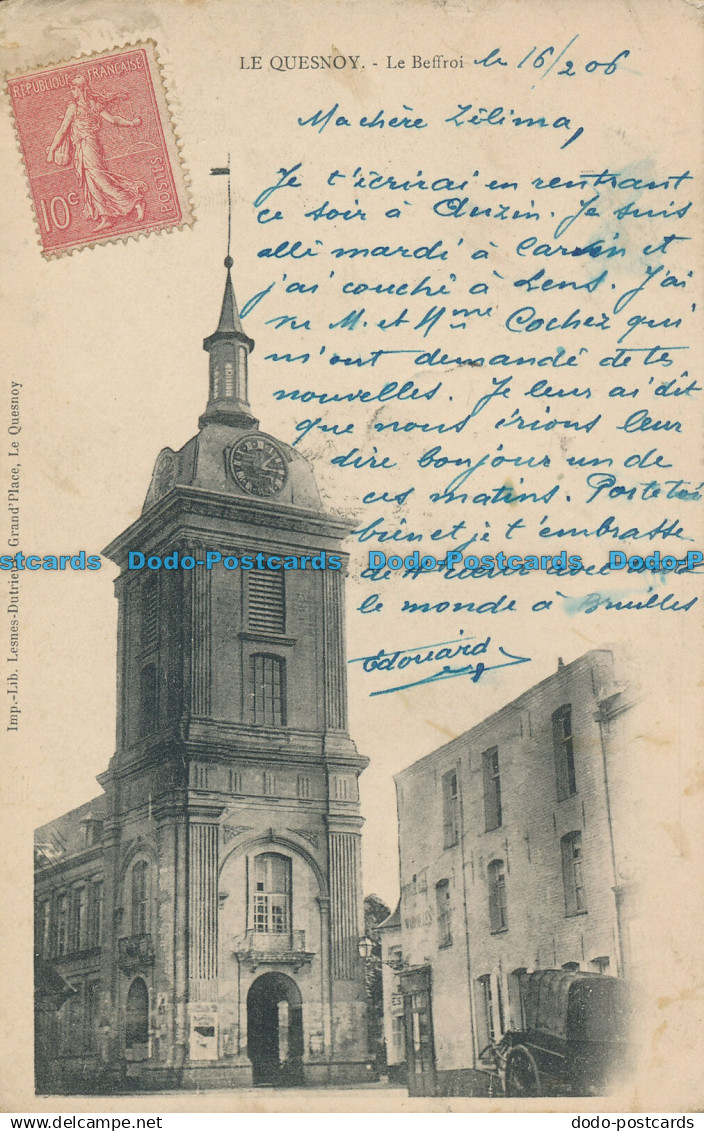 LE QUESNOY. - Le Beffroi le 16/2 06
Ma chère Zélima,
Je t'écrirai en rentrant
ce soir à Anzin. Je suis
allé mardi à Carvin et
j'ai couché à Lens. J'ai
vu M. et Mme Cochez qui
m'ont demandé de tes
nouvelles. Je leur ai dit
que nous irions leur
dire bonjour un de
ces matins. Porte toi
bien et je t'embrasse
de cœur avec tout
le monde à Bruilles
Edouard
REPUBLIQUE FRANÇAISE
POSTES
10c
Imp.-Lib. Lesnes-Dutrieu, Grand'Place, Le Quesnoy
postcards Dodo-Postcards Dodo-Postcards Dodo-Postcards
dodo-postcards